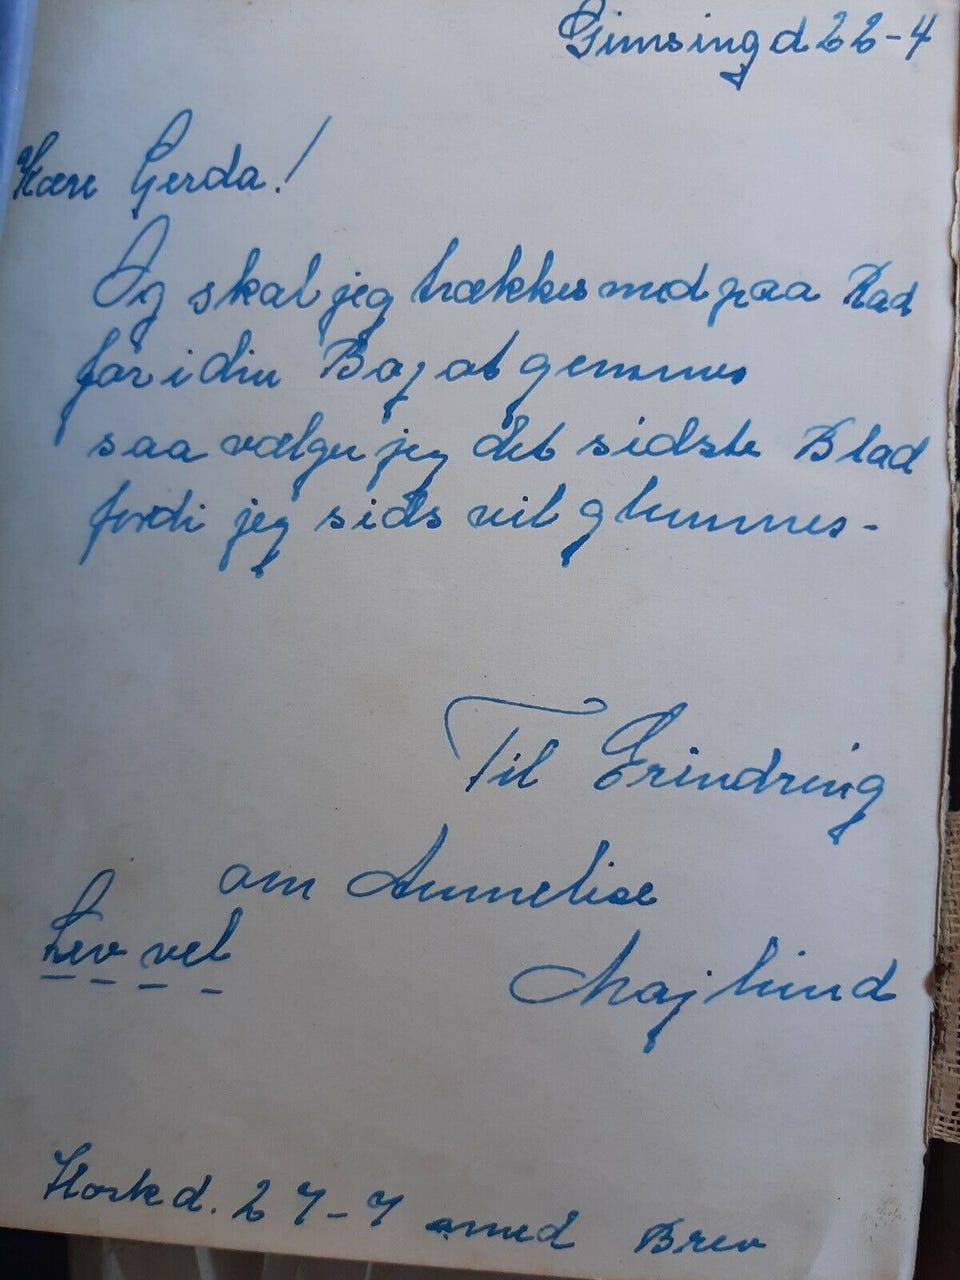 Gimsing d 22-4
Kære Gerda!
Og skal jeg trækkes med paa Rad
før i din Bog at gemmes
saa vælger jeg det sidste Blad
fordi jeg sids vil glemmes-
Til Erindring
om Annelise
Lev vel
Majlund
d. 27-7 med Brev